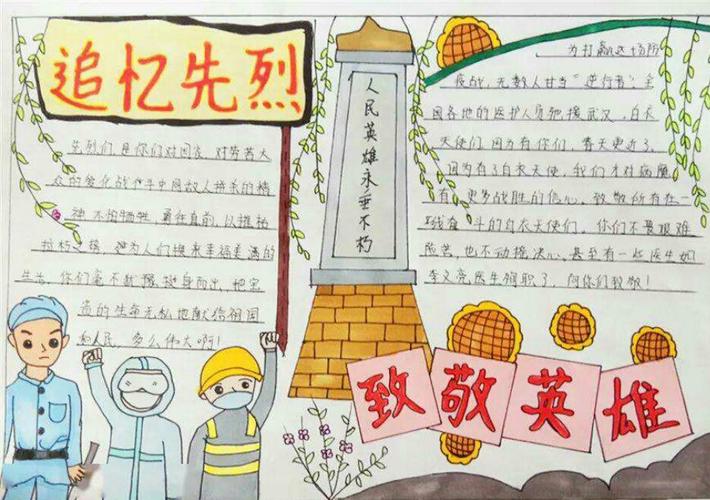 追忆先烈
先烈们,是你们对国家,对劳苦大
众的爱化 中国敌人拼杀的精
神,不怕牺牲,勇往直前,以摧枯
拉朽之 为人们换来幸福美满的
生活,你们毫不犹豫,挺身而出,把宝
贵的生命无私地献给祖国
和人民,多么伟大啊!
人民英雄永垂不朽
为打赢这场防
疫战,无数人甘当“逆行者”,全
国各地的医护人员驰援武汉,白衣
天使们,因为有你们,春天更近了。
因为有了白衣天使,我们才对病魔
有了更多战胜的信心。致敬所有在一
线奋斗的白衣天使们,你们不畏艰难
险苦,也不动摇决心,甚至有一些医生如
李文亮医生殉职了,向你们致敬!
致敬英雄